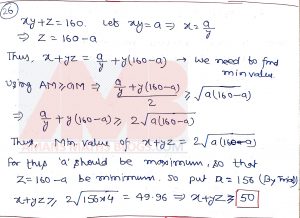 26
xy+z=160. Let xy=a ⇒ x=a/y
⇒ z=160-a
Thus, x+yz = a/y + y(160-a) → we need to find min value.
Using AM≥GM ⇒ (a/y + y(160-a))/2 ≥ √(a(160-a))
⇒ a/y + y(160-a) ≥ 2√(a(160-a))
Thus, Min value of x+yz = 2√(a(160-a))
For this 'a' should be maximum, so that
z=160-a be minimum. So put a=156 (By Trial)
x+yz ≥ 2√(156×4) = 49.96 ⇒ x+yz ≥ 50